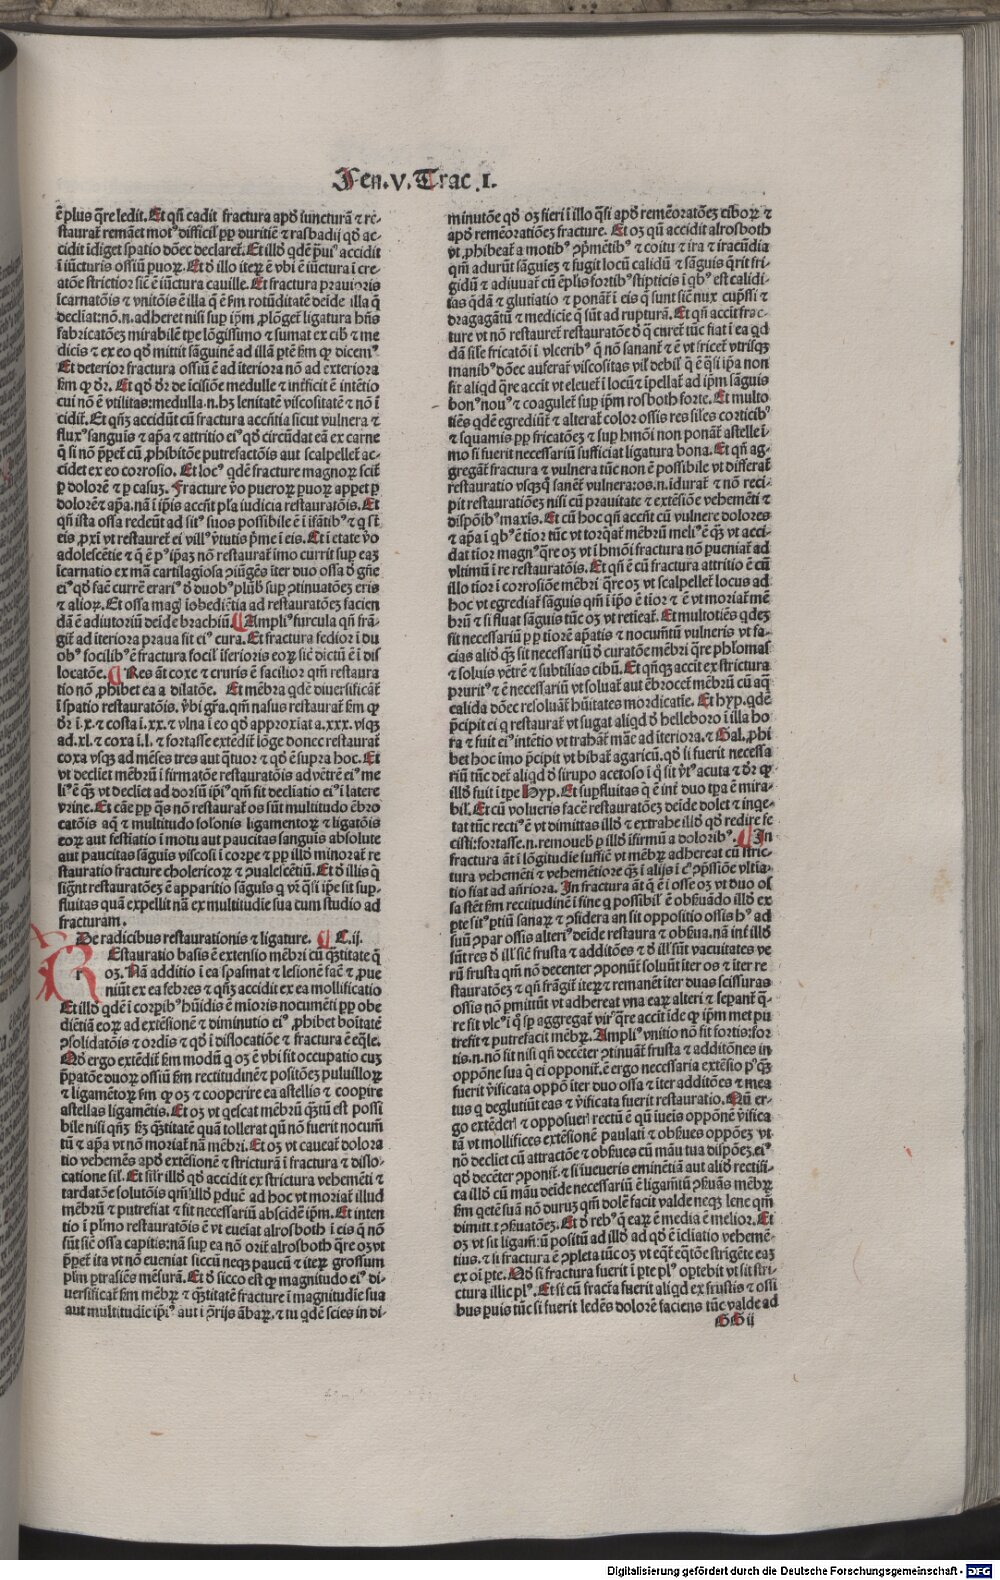 Fen.v.Trac.I.
ē plus q̄re ledit. Et qn̄ cadit fractura apd' iuncturā ⁊ re-
staurat̄ remāet mot' difficil' ꝓp duritiē ⁊ rasbadij qd' ac-
cidit īdiget spatio dōec declaret̄. Et illd' qd̄e p̄ui' accidit
ī iūcturis ossiū puoꝝ. Et d' illo iteꝝ ē vbi ē iūctura ī cre-
atōe strictior sic̄ ē iūctura cauille. Et fractura prauioris
īcarnatōis ⁊ vnitōis ē illa q̄ ē fm rotūditatē deīde illa q̄
decliat:nō.n.adheret nisi sup ip̄m ꝓlōget̄ ligatura hn̄s
fabricatōez mirabilē tp̄e lōgissimo ⁊ sumat ex cib' ⁊ me
dicis ⁊ ex eo qd' mittit sāguinē ad illā ptē fm ꝙ dicem'
Et deterior fractura ossiū ē ad iteriora nō ad exteriora
fm ꝙ dr̄. Et qd' dr̄ de icisiōe medulle ⁊ int̄ficit ē intētio
cui nō ē vtilitas:medulla.n.hz lenitatē viscositatē ⁊ nō ī
cidit̄. Et qn̄z accidūt cū fractura accn̄tia sicut vulnera ⁊
flux' sanguīs ⁊ ap̄a ⁊ attritio ei' qd' circūdat eā ex carne
q̄ si nō p̄pet̄ cū ꝓhibitōe putrefactōis aut scalpellet̄ ac-
cidet ex eo corrosio. Et loc' qd̄e fracture magnoꝝ scit̄
ꝑ dolorē ⁊ ꝑ casuz. Fracture v̄o pueroꝝ puoꝝ appet ꝑ
dolorē ⁊ ap̄a.nā ī ip̄is accn̄t pl̄a iudicia restauratōis. Et
qn̄ ista ossa redeūt ad sit' suos possibile ē ī īfātib' ⁊ q st̄
eis ꝓxī vt restauret̄ ei vill' v̄tutis p̄me ī eis. Et ī etate v̄o
adolescētie ⁊ q̄ ē p' ip̄az nō restaurat̄ imo currit sup eaz
īcarnatio ex mā cartilagiosa ꝯiūgēs īter duo ossa d' gn̄e
ei' qd' faē currē erari' d' duob' plūb' sup ꝯtinuatōez eris
⁊ alioꝝ. Et ossa magi iobediētia ad restauratōez facien
dā ē adiutoriū deīde brachiū. ¶Ampli' furcula qn̄ frā-
git̄ ad iteriora praua sit ei' cura. Et fractura fedior ī du
ob' focilib' ē fractura focil' īferioris eoꝝ sic̄ dictū ē ī dis
locatōe. ¶Res āt coxe ⁊ cruris ē facilior qm̄ restaura
tio nō ꝓhibet ea a dilatōe. Et mēbra qd̄e diuersificāt̄
ī spatio restauratōis. v̄bi gr̄a.qm̄ nasus restaurat̄ fm ꝙ
dr̄ ī.x.⁊ costa ī.xx.⁊ vlna ī eo qd' approxiat a.xxx.vsqꝫ
ad.xl.⁊ coxa ī.l.⁊ fortasse extēdit̄ lōge donec restaurat̄
coxa vsqꝫ ad mēses tres aut q̄tuor ⁊ qd' ē supra hoc. Et
vt decliet mēbrū ī firmatōe restauratōis ad vētrē ei' me
li' ē q̄ꝫ vt decliet ad dorsū ip̄i' qm̄ fit decliatio ei' ī latere
vrine. Et cāe ꝓp q̄s nō restaurat̄ os sūt multitudo ēbro
catōis aq̄ ⁊ multitudo solonis ligamentoꝝ ⁊ ligatōis
eoꝝ aut festiatio ī motu aut paucitas sanguis absolute
aut paucitas sāguis viscosi ī corpe ⁊ ꝓp illd' minorat̄ re
stauratio fracture cholericoꝝ ⁊ ꝯualescētiū. Et d' illis q̄
sign̄t restauratōez ē apparitio sāguīs q̄ vr̄ q̄si ip̄e sit sup-
fluitas quā expellit nā ex multitudie sua cum studio ad
fracturam.
De radicibus restaurationis ⁊ ligature. ¶C.ij.
REstauratio basis ē extensio mēbri cū q̄ꝫtitate q̄
oꝫ. Nā additio ī ea spasmat ⁊ lesionē facit ⁊ ꝓue
niūt ex ea febres ⁊ qn̄ꝫ accidit ex ea mollificatio
Et illd' qd̄e ī corpib' hūidis ē mioris nocumēti ꝓp obe
diētiā eoꝝ ad extēsionē ⁊ diminutio ei' ꝓhibet boitatē
ꝯsolidatōis ⁊ ordis ⁊ qd' ī dislocatiōe ⁊ fractura ē eq̄le.
Qd' ergo extēdit̄ fm modū q̄ oꝫ ē vbi fit occupatio cuꝫ
p̄patōe duoꝝ ossiū fm rectitudinē ⁊ positōez puluilloꝝ
⁊ ligamētoꝝ fm ꝙ oꝫ ⁊ cooperire ea astellis ⁊ coopire
astellas ligamētis. Et oꝫ vt q̄escat mēbrū q̄ꝫtū est possi
bile nisi qn̄ꝫ fꝫ q̄ꝫtitatē quā tollerat qn̄ nō fuerit nocum̄
tū ⁊ ap̄a vt nō moriat̄ nā mēbri. Et oꝫ vt caueat̄ dolora
tio vehemēs apd' extēsionē ⁊ stricturā ī fractura ⁊ dislo-
catione sil'. Et sil'r illd' qd' accidit ex strictura vehemēti ⁊
tardatōe solutōis qm̄ illd' ꝑduc̄ ad hoc vt moriat̄ illud
mēbrū ⁊ putrefiat ⁊ fit necessariū abscidē ip̄m. Et inten
tio ī pl'imo restauratōis ē vt eueiat alrosboth ī eis q̄ nō
sūt sic̄ ossa capitis:nā sup ea nō orit̄ alrosboth q̄re oꝫ vt
p̄pet̄ ita vt nō eueniat siccū neqꝫ paucū ⁊ iteꝝ grossum
pl'im p̄trasiēs mēsurā. Et d' sicco est ꝙ magnitudo ei' di-
uersificat̄ fm mēbꝝ ⁊ q̄ꝫtitatē fracture ī magnitudie sua
aut multitudie ip̄i' aut ī ꝯ̄rijs ābaꝝ.⁊ tu qd̄e scies in di-
minutōe qd' oꝫ fieri ī illo q̄si apd' remēoratōez ciboꝝ ⁊
apd' remēoratiōez fracture. Et oꝫ qn̄ accidit alrosboth
vt ꝓhibeat̄ a motib' ꝯp̄mētib' ⁊ coitu ⁊ ira ⁊ iracūdia
qm̄ adurūt sāguiez ⁊ fugit locū calidū ⁊ sāguis q̄rit fri-
gidū ⁊ adiuuat̄ cū ēplis fortib' stipticis ī qb' est calidi-
tas q̄dā ⁊ glutiatio ⁊ ponāt̄ ī eis q̄ sunt sic̄ nux cup̄ssi ⁊
dragagātū ⁊ medicie q̄ sūt ad rupturā. Et qn̄ accit̄ frac-
ture vt nō restauret̄ restauratōe d' q̄ curet̄ tūc fiat ī ea qd
dā sil'e fricatōi ī vlcerib' q̄ nō sanant̄ ⁊ ē vt fricet̄ vtrisqꝫ
manib' dōec auferat̄ viscositas vil' debil' q̄ ē q̄si ip̄a non
fit aliqd q̄re accit vt eleuet̄ ī locū ⁊ īpellat̄ ad ip̄m sāguis
bon' nou' ⁊ coagulet̄ sup ip̄m rosboth forte. Et multo
tiēs qd̄e egrediūt̄ ⁊ alterat̄ color ossis res siles corticib'
⁊ squamis ꝓp fricatōez ⁊ sup hmōi non ponāt̄ astelle ī-
mo si fuerit necessariū sufficiat ligatura bona. Et qn̄ ag-
gregāt̄ fractura ⁊ vulnera tūc non ē possibile vt differat̄
restauratio vsqꝫq̄ sanēt̄ vulnera:os.n.īdurat̄ ⁊ nō reci-
pit restauratiōez nisi cū prauitate ⁊ extēsiōe vehemēti ⁊
dispōib' maxis. Et cū hoc qn̄ accn̄t cū vulnere dolores
⁊ ap̄a ī qb' ē tior tūc vt torqat̄ mēbrū meli' ē q̄ꝫ vt acci-
dat tior magn' q̄re oꝫ vt ī hmōi fractura nō pueniat̄ ad
vltimū ī re restauratōis. Et qn̄ ē cū fractura attritio ē cū
illo tior ī corrosiōe mēbri q̄re oꝫ vt scalpellet̄ locus ad
hoc vt egrediat̄ sāguis qm̄ ī ip̄o ē tior ⁊ ē vt moriat̄ mē
brū ⁊ si fluat sāguis tūc oꝫ vt retieat̄. Et multotiēs qdeꝫ
fit necessariū ꝓp tiorē ap̄atis ⁊ nocumētū vulneris vt fa-
cias aliqd q̄ꝫ fit necessariū d' curatōe mēbri q̄re phlomas
⁊ soluis vētrē ⁊ subtilias cibū. Et qn̄qꝫ accit ex strictura
prurit' ⁊ ē necessariū vt soluat̄ aut ēbrocet̄ mēbrū cū aq̄
calida dōec resoluāt̄ hūitates mordicatie. Et hyp.qd̄e
p̄cipit ei q restaurat̄ vt sugat aliqd d' helleboro ī illa ho
ra ⁊ fuit ei' intētio vt trahat̄ māe ad iteriora.⁊ Gal. ꝓhi
bet hoc imo p̄cipit vt bibat̄ agaricū.qd' si fuerit necessa
riū tūc det̄ aliqd d' sirupo acetoso ī q̄ sit v̄t' acuta ⁊ dr̄ ꝙ
illd' fuit ī tp̄e Hyp. Et supfluitas q̄ ē int̄ duo tp̄a ē mira-
bil'. Et cū volueris facē restauratōez deīde dolet ⁊ inqe-
tat̄ tūc recti' ē vt dimittas illd' ⁊ extrahe illd' qd' redire fe
cisti:fortasse.n.remoueb' p illd' īfirmū a dolorib'. ¶In
fractura āt ī lōgitudie suffic̄ vt mēbꝝ adhereat cū stric-
tura vehemēti ⁊ vehemētiore q̄ꝫ ī alijs ī ꝯp̄ssiōe vltia-
tio fiat ad ān̄riora. In fractura āt q̄ ē ī osse oꝫ vt duo os
sa stēt fm rectitudinē ī fine q possibil' ē obsuādo illd' ex
pte sit' ptiū sanaꝝ ⁊ ꝯsidera an sit oppositio ossis h' ad
suū ꝯpar ossis alteri' deīde restaura ⁊ obsua.nā int̄ illd'
sūt res d' ill' sic̄ frusta ⁊ additōes ⁊ d' ill' sūt vacuitates ve
rū frusta qm̄ nō decenter ꝯponūt̄ soluūt īter os ⁊ īter re
stauratōez ⁊ qn̄ frāgit̄ iteꝝ ⁊ remanēt īter duas scissuras
ossis nō pmittūt vt adhereat vna eaꝝ alteri ⁊ sepant̄ q̄-
re fit vlc' ī q̄ sp aggregat̄ vir' q̄re accit īde ꝙ ip̄m met pu
trefit ⁊ putrefacit mēbꝝ. Ampli' vnitio nō fit fortis:for
tis.n.nō fit nisi qn̄ decēter ꝯtinuāt̄ frusta ⁊ additōnes in
oppōne sua q̄ ei opponit̄.ē ergo necessaria extēsio p' q̄ꝫ
fuerit v̄ificata oppō īter duo ossa ⁊ īter additōes ⁊ mea
tus q̄ deglutiūt eas ⁊ v̄ificata fuerit restauratio. Nū er-
go extēderi ⁊ opposueri rectū ē qn̄ iueīs oppōne v̄ifica
tā vt mollifices extēsionē paulatī ⁊ obsues oppōez vt
nō decliet cū attractōe ⁊ obsues cū māu tua dispōez.ei'
qd' decēter ꝯponit̄.⁊ si īueueris eminētiā aut aliqd rectifi-
ca illd' cū māu deīde necessariū ē ligamtū ꝯsuās mēbꝝ
fm qetē suā nō duruꝫ qm̄ dolē facit valde neqꝫ lene qm̄
dimitt.t ꝯsuatōez. Et d' reb' q̄ eaꝝ ē media ē melior. Et
oꝫ vt sit ligam̄:ū positū ad illd' ad qd' ē icliatio vehemē-
tius.⁊ si fractura ē ꝯpleta tūc oꝫ vt eqt̄ eqtōe strigēte eaꝫ
ex oi pte. Qd' si fractura fuerit ī pte pl' optebit vt sit stri-
ctura illic pl'. Et si cū fractra fuerit aliqd ex frustis ⁊ ossi
bus puis tūc si fuerit ledēs dolorē faciens tūc valde ad
GG ij
Digitalisierung gefördert durch die Deutsche Forschungsgemeinschaft - DFG